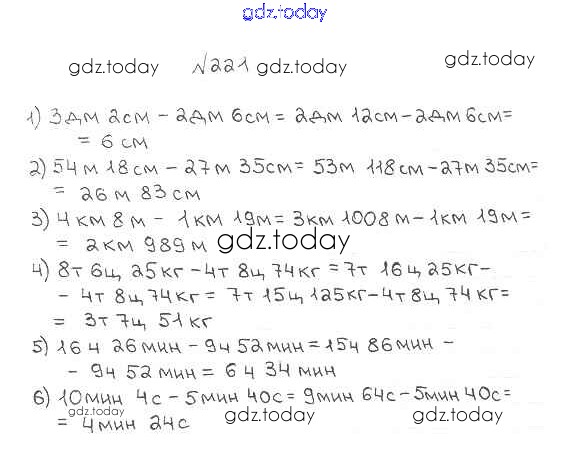 gdz.today
gdz.today №221 gdz.today gdz.today
1) 3дм 2см - 2дм 6см = 2дм 12см - 2дм 6см =
= 6 см
2) 54м 18см - 27м 35см = 53м 118см - 27м 35см =
= 26м 83см
3) 4км 8м - 1км 19м = 3км 1008м - 1км 19м =
= 2км 989м gdz.today
4) 8т 6ц 25кг - 4т 8ц 74кг = 7т 16ц 25кг -
- 4т 8ц 74кг = 7т 15ц 125кг - 4т 8ц 74кг =
= 3т 7ц 51кг
5) 16ч 26мин - 9ч 52мин = 15ч 86мин -
- 9ч 52мин = 6ч 34мин
6) 10мин 4с - 5мин 40с = 9мин 64с - 5мин 40с =
gdz.today gdz.today gdz.today
= 4мин 24с